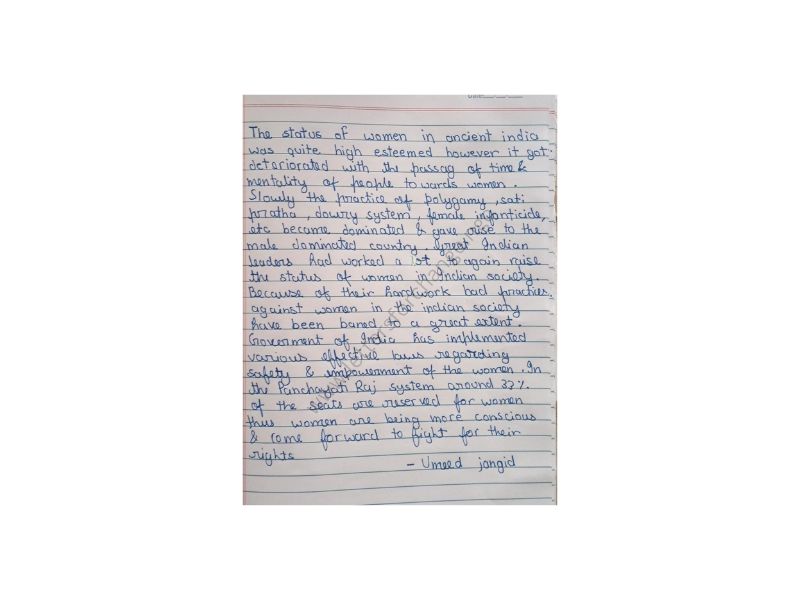 Date:
The status of women in ancient india
was quite high esteemed however it got
deteriorated with the passag of time &
mentality of people towards women.
Slowly the practice of polygamy, sati
pratha, dowry system, female infanticide,
etc became dominated & gave rise to the
male dominated country. Great Indian
leaders had worked a lot to again raise
the status of women in Indian society.
Because of their hardwork bad practices
against women in the indian society
have been baned to a great extent.
Goverment of India has implemented
various effective laws regarding
safety & empowerment of the women. In
the Panchayati Raj system around 33%
of the seats are reserved for women
thus women are being more conscious
& come forward to fight for their
rights
- Umeed jangid